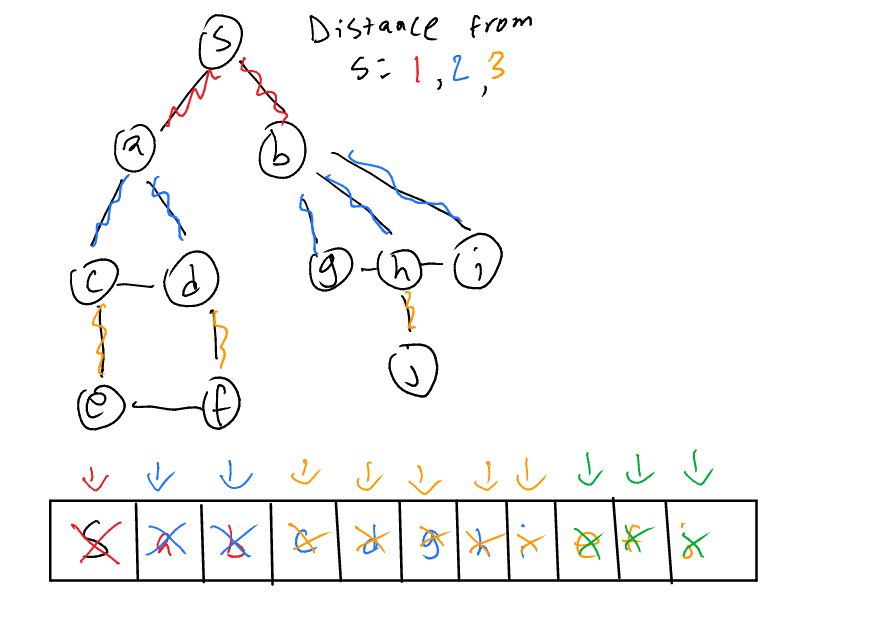 S
Distance from
S = 1, 2, 3
a
b
c
d
g
h
i
e
f
j
S a b c d g h i e f j